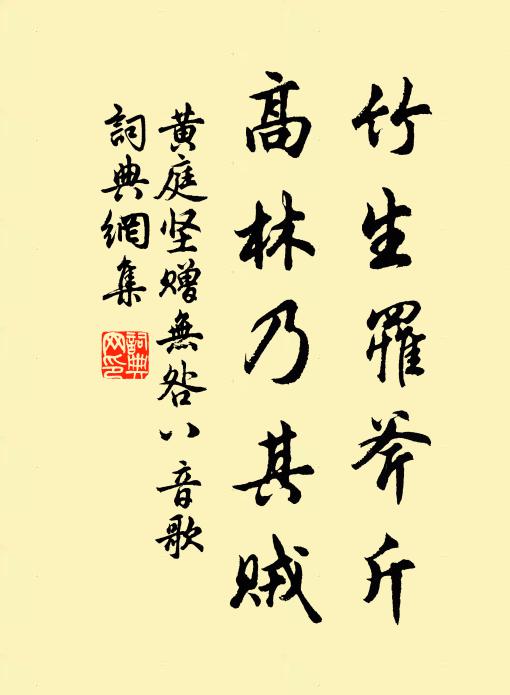 竹生罹斧斤
高林乃其贼
黄庭坚赠無咎八音歌
詞典網集
詞典
网印